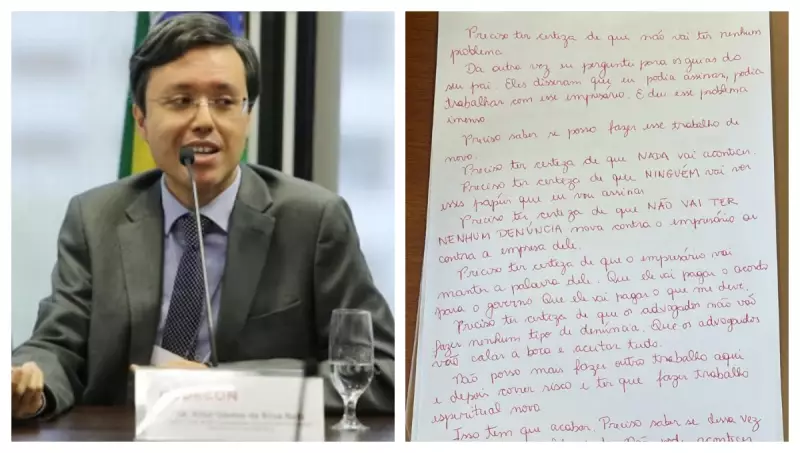 Preciso ter certeza de que não vai ter nenhum
problema.
Da outra vez eu perguntei para os guias do
seu pai. Eles disseram que eu podia assinar, podia
trabalhar com esse empresário. E deu esse problema
imenso.
Preciso saber se posso fazer esse trabalho de
novo.
Preciso ter certeza de que NADA vai acontecer.
Preciso ter certeza de que NINGUÉM vai ver
esses papéis que eu vou assinar.
Preciso ter certeza de que NÃO VAI TER
NENHUM DENÚNCIA nova contra o empresário ou
contra a empresa dele.
Preciso ter certeza de que o empresário vai
manter a palavra dele. Que ele vai pagar o acordo
para o governo. Que ele vai pagar o que me deve.
Preciso ter certeza de que os advogados não vão
fazer nenhum tipo de denúncia. Que os advogados
vão calar a boca e aceitar tudo.
Não posso mais fazer outro trabalho aqui
e depois correr risco e ter que fazer trabalho
espiritual novo.
Isso tem que acabar. Preciso saber se dessa vez
acontecer